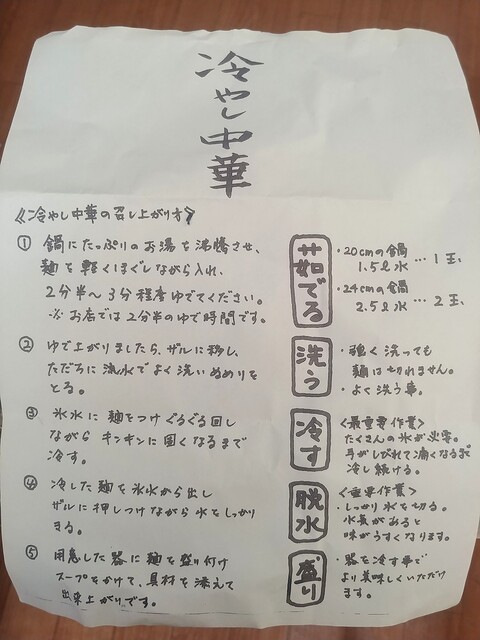 冷やし中華
《冷やし中華の召し上がり方》
① 鍋にたっぷりのお湯を沸騰させ、
麺を軽くほぐしながら入れ、
2分半〜3分程度ゆでてください。
※お店では2分半のゆで時間です。
茹でる
・20cmの鍋
1.5ℓ水 … 1玉
・24cmの鍋
2.5ℓ水 … 2玉
② ゆで上がりましたら、ザルに移し、
ただちに流水でよく洗いぬめりを
とる。
洗う
・強く洗っても
麺は切れません。
・よく洗う事。
③ 氷水に麺をつけぐるぐる回し
ながらキンキンに固くなるまで
冷す。
冷す
<最重要作業>
たくさんの氷が必要。
手がしびれて痛くなるまで
冷し続ける。
④ 冷した麺を氷水から出し
ザルに押しつけながら水をしっかり
きる。
脱水
<重要作業>
・しっかり水を切る。
水気があると
味がうすくなります。
⑤ 用意した器に麺を盛り付け
スープをかけて、具材を添えて
出来上がりです。
盛り
・器を冷す事で
より美味しくいただけ
ます。